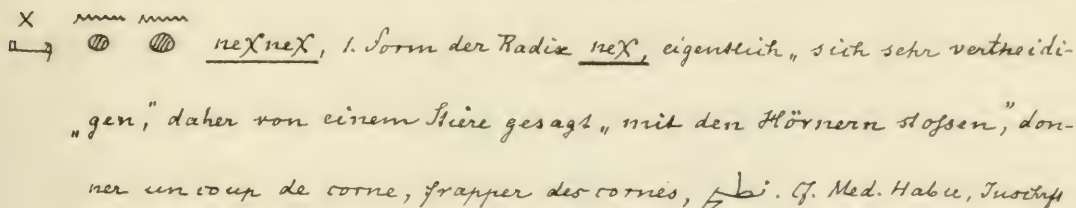 neχneχ, 1. Form der Radix neχ, eigentlich „sich sehr vertheidi-
„gen,“ daher von einem Stiere gesagt „mit den Hörnern stoßen“, don-
ner un coup de corne, frapper des cornes, نطح. Cf. Med. Habu, Inschrift